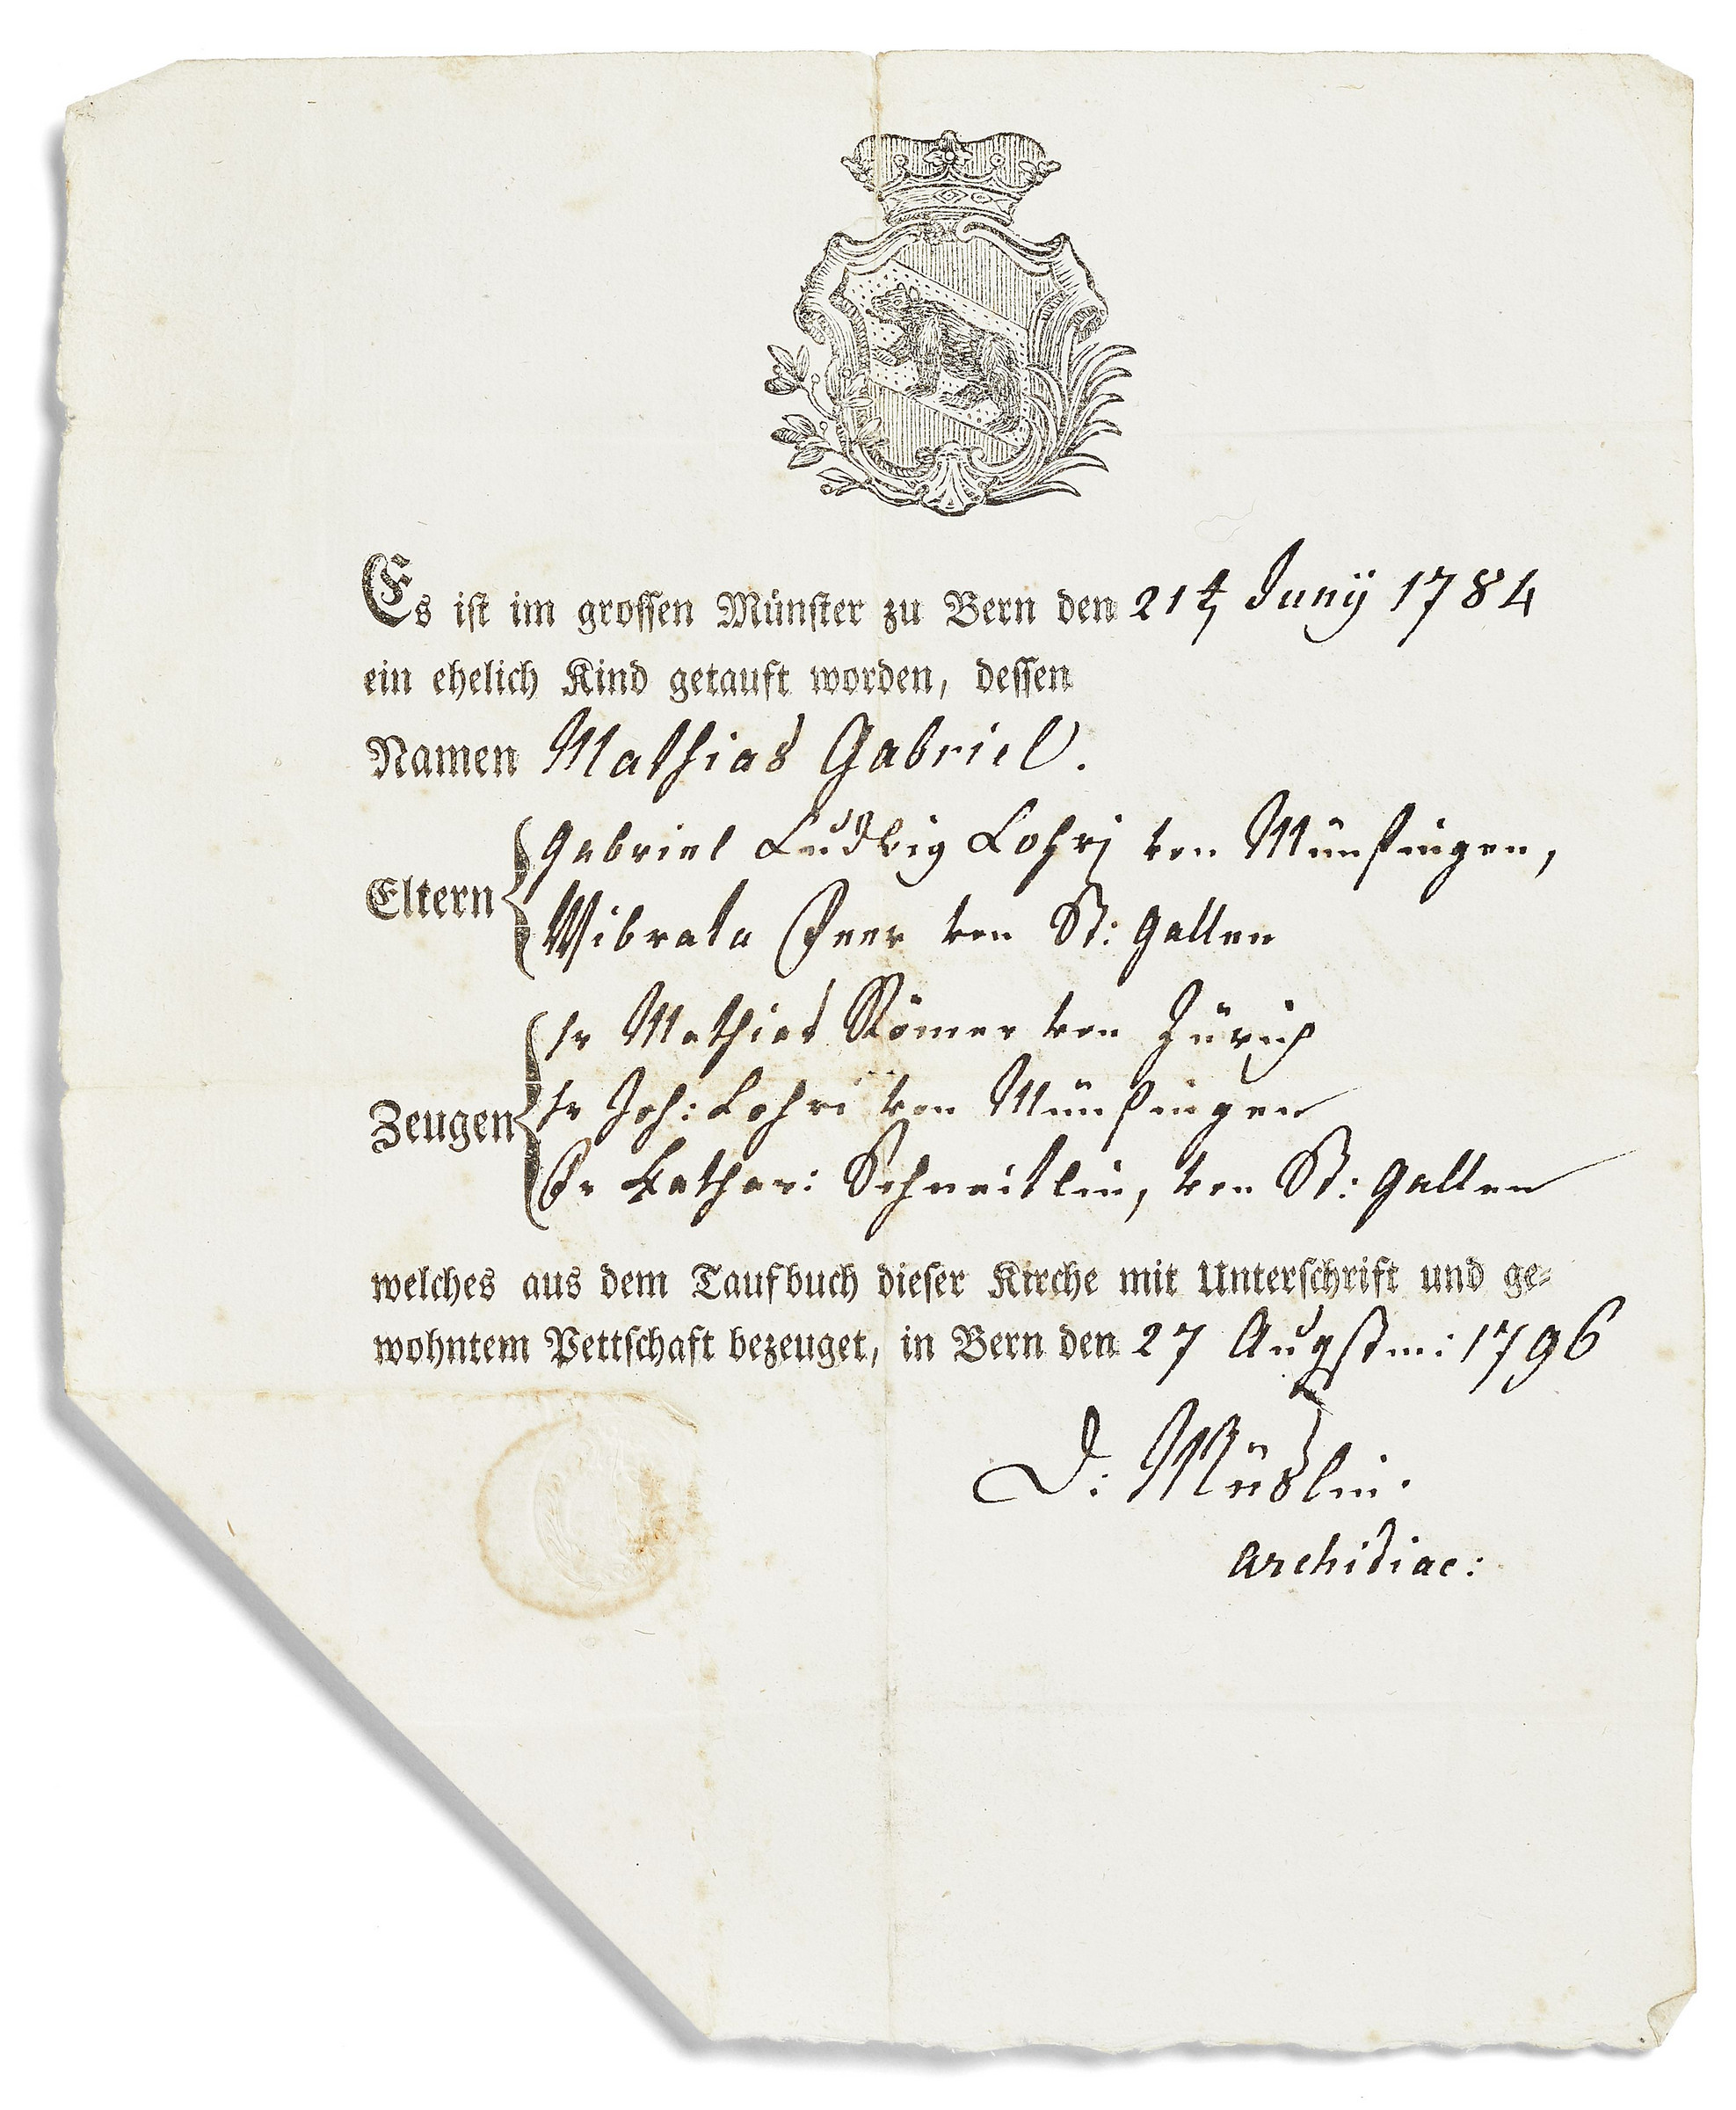 Es ist im grossen Münster zu Bern den 21t Junÿ 1784
ein ehelich Kind getauft worden, dessen
Namen Mathias Gabriel.
Eltern
Gabriel Ludwig Lohrj von Münsingen,
Wibrata von St: Gallen
Zeugen
hr Mathias Römer von Zürich
hr Joh: Lohri von Münsingen
Fr Cathar: Schneitlin, von St: Gallen
welches aus dem Taufbuch dieser Kirche mit Unterschrift und ge=
wohntem Pettschaft bezeuget, in Bern den 27 Augstm: 1796
D: Müslin.
Archidiac: